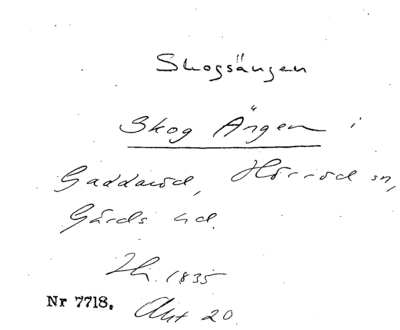 Skogsängen
Skog Ängen i
Gaddaröd, Hörröd sn,
Gärds hd.
1835
Nr 7718. Akt 20